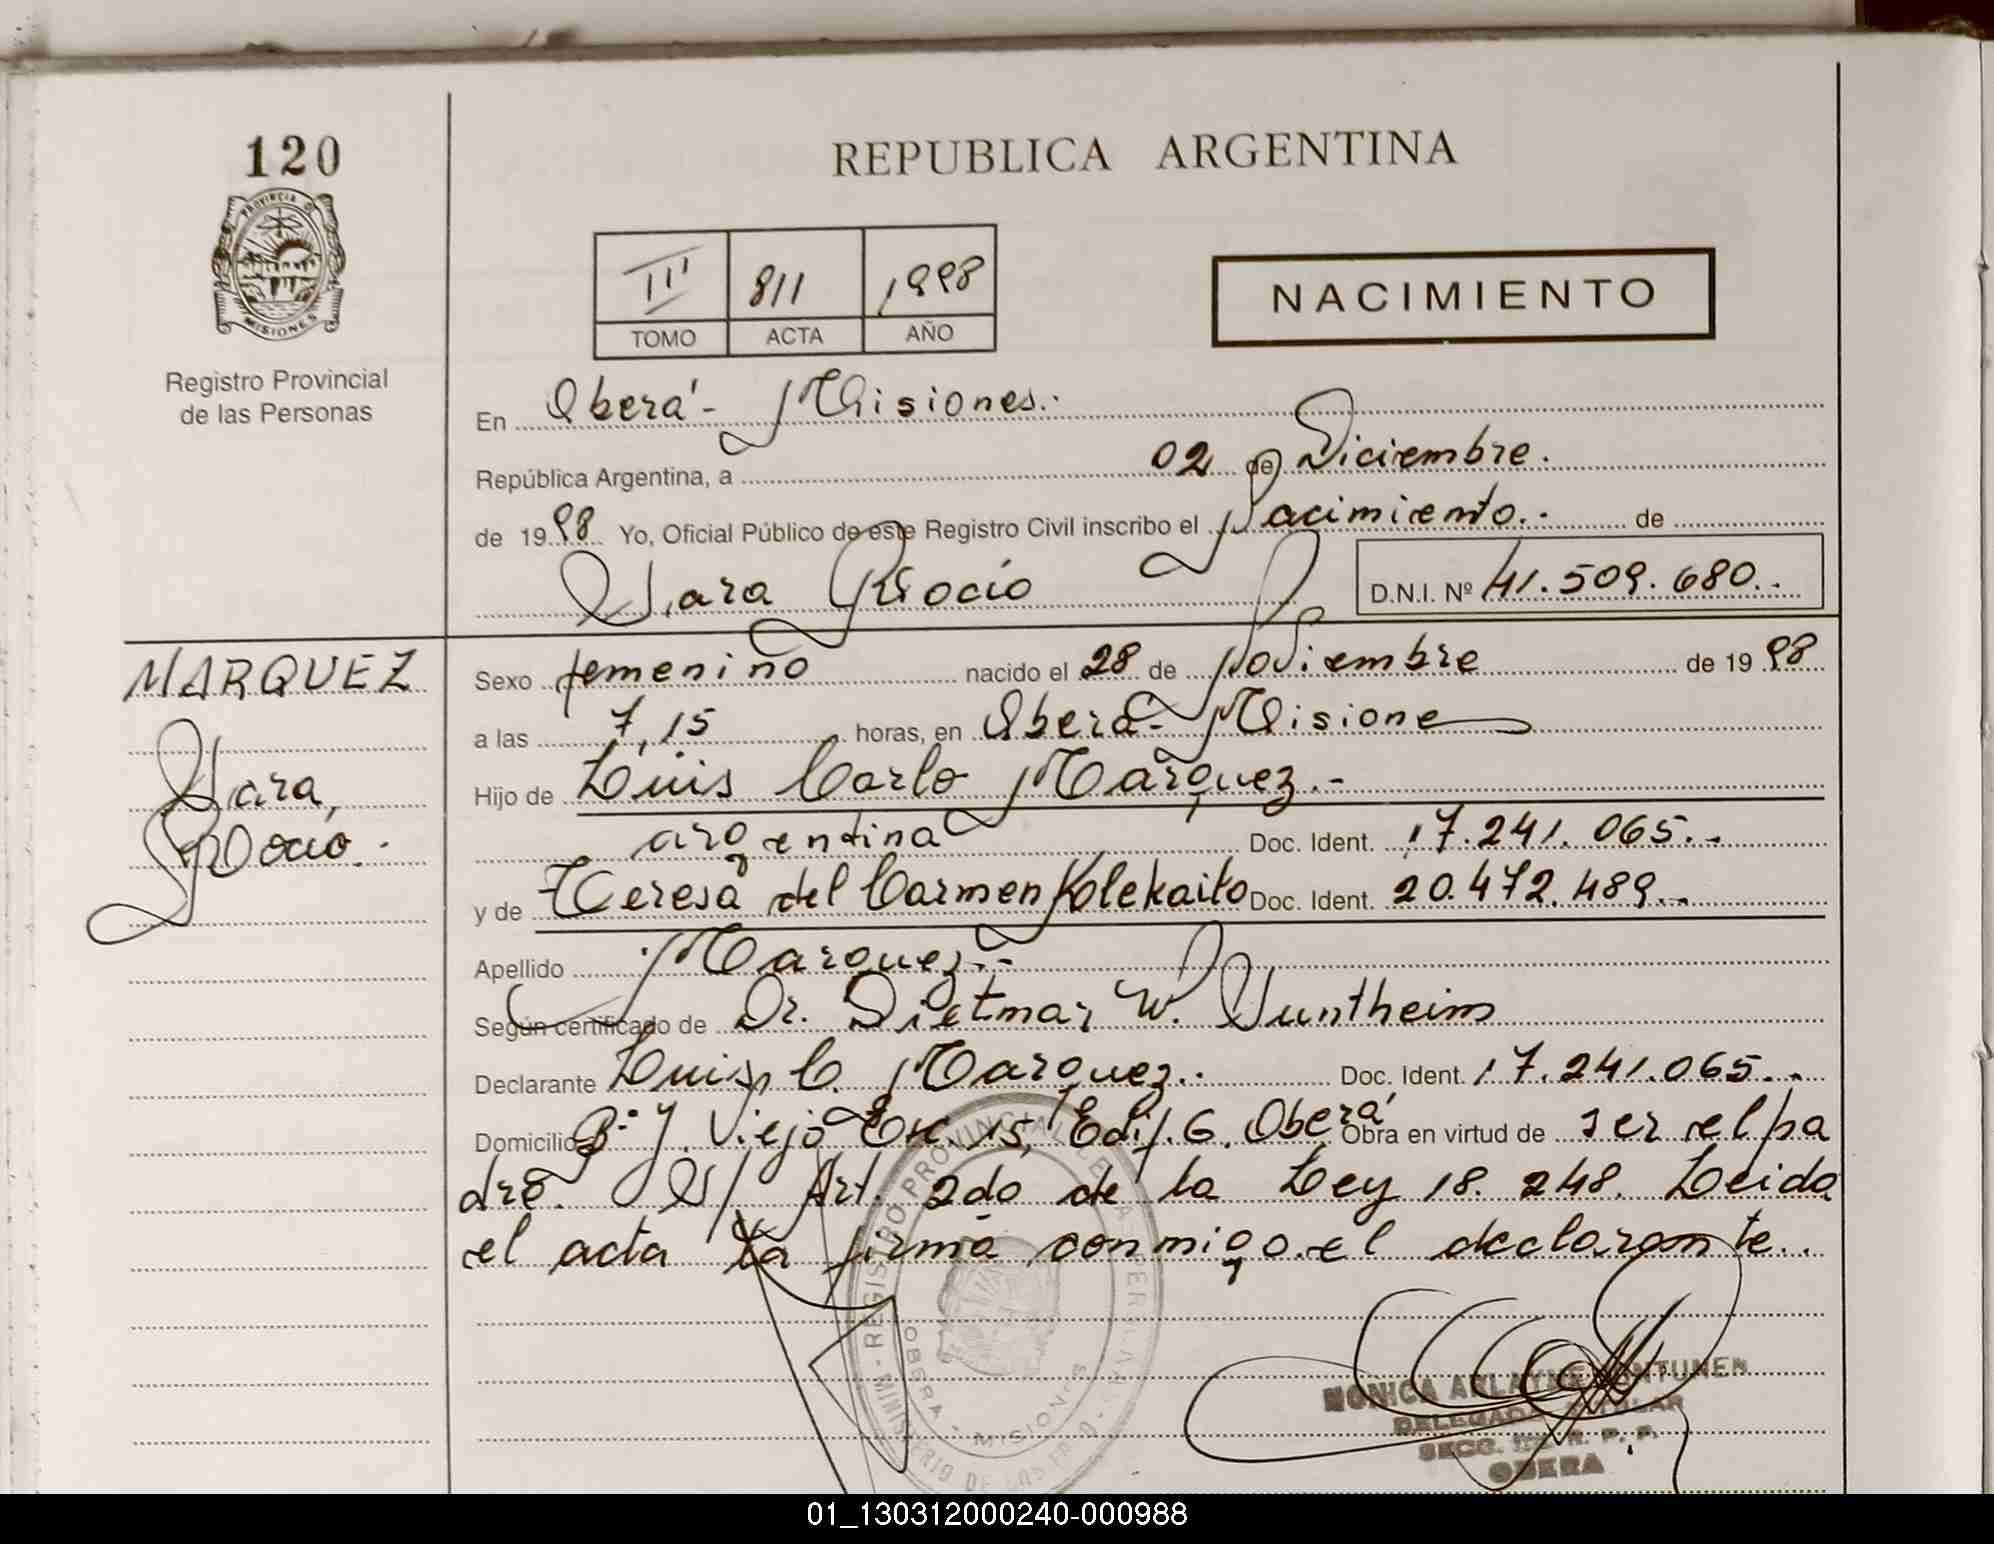 120
REPUBLICA ARGENTINA
PROVINCIA D
MISIONES
Registro Provincial
de las Personas
III 811 1998
TOMO ACTA AÑO
NACIMIENTO
En Oberá - Misiones.-
República Argentina, a 02 de Diciembre.
de 19 98 Yo, Oficial Público de este Registro Civil inscribo el Nacimiento.- de
Yara Rocío D.N.I. Nº 41.509.680.-
MARQUEZ
Yara,
Rocío.-
Sexo femenino nacido el 28 de Noviembre de 19 98
a las 7,15 horas, en Oberá - Misiones
Hijo de Luis Carlo Marquez.-
argentina Doc. Ident. 17.241.065.-
y de Teresa del Carmen Kolekaito Doc. Ident. 20.472.489.-
Apellido Marquez.-
Según certificado de Dr. Dietmar W. Guntheim
Declarante Luis C. Marquez.- Doc. Ident. 17.241.065.-
Domicilio Bº Viejo Esc. 15, Edif. 6. Oberá Obra en virtud de ser el pa
dre. S/ Art. 2do de la Ley 18.248. Leida
el acta la firma conmigo el declarante.-
REGISTRO PROVINCIAL DE LAS PERSONAS
OBERA - MISIONES
MONICA
DELEGADA TITULAR
SECC. R. P. P.
OBERA
01_130312000240-000988